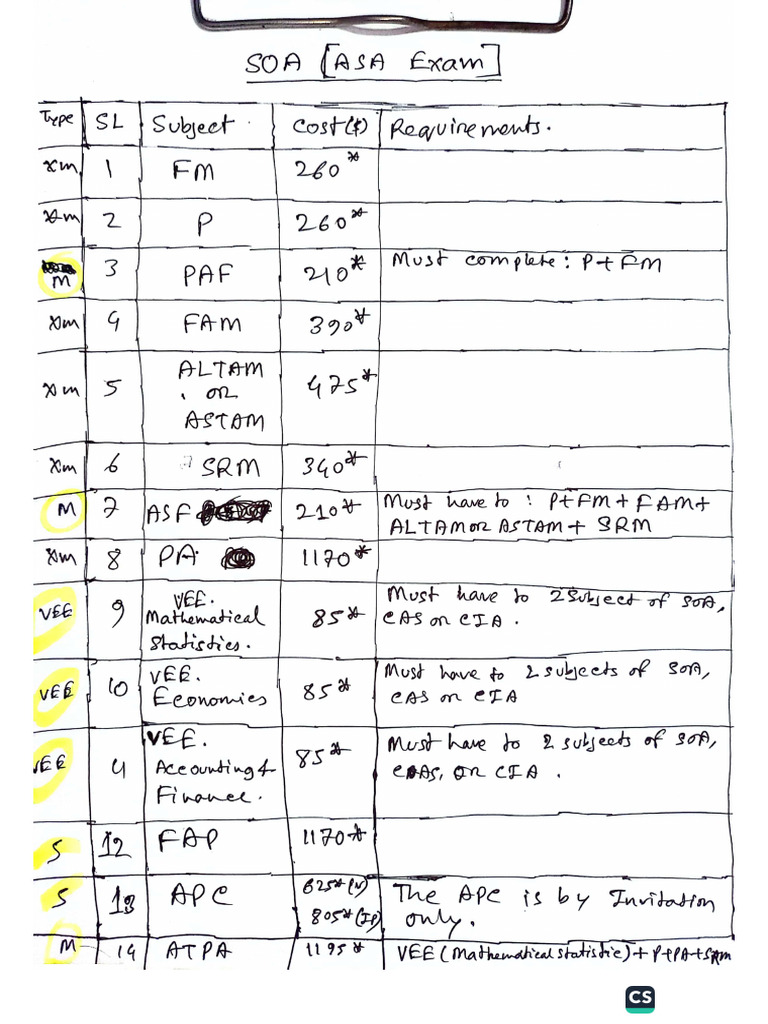 SOA [ASA Exam]
Type SL Subject Cost($) Requirements.
xm 1 FM 260*
xm 2 P 260*
M 3 PAF 210* Must complete: P+FM
xm 4 FAM 390*
xm 5 ALTAM
. or
ASTAM 475*
xm 6 SRM 340*
M 7 ASF 210* Must have to : P+FM+FAM+
ALTAM or ASTAM + SRM
xm 8 PA 1170*
VEE 9 VEE.
Mathematical
Statistics. 85* Must have to 2 Subject of SOA,
CAS or CIA.
VEE 10 VEE.
Economics 85* Must have to 2 subjects of SOA,
CAS or CIA
VEE 11 VEE.
Accounting &
Finance. 85* Must have to 2 subjects of SOA,
CAS, or CIA.
S 12 FAP 1170*
S 13 APC 625*(V)
805*(IP) The APC is by Invitation
only.
M 14 ATPA 1195* VEE (Mathematical Statistic) + P+PA+SRM
CS